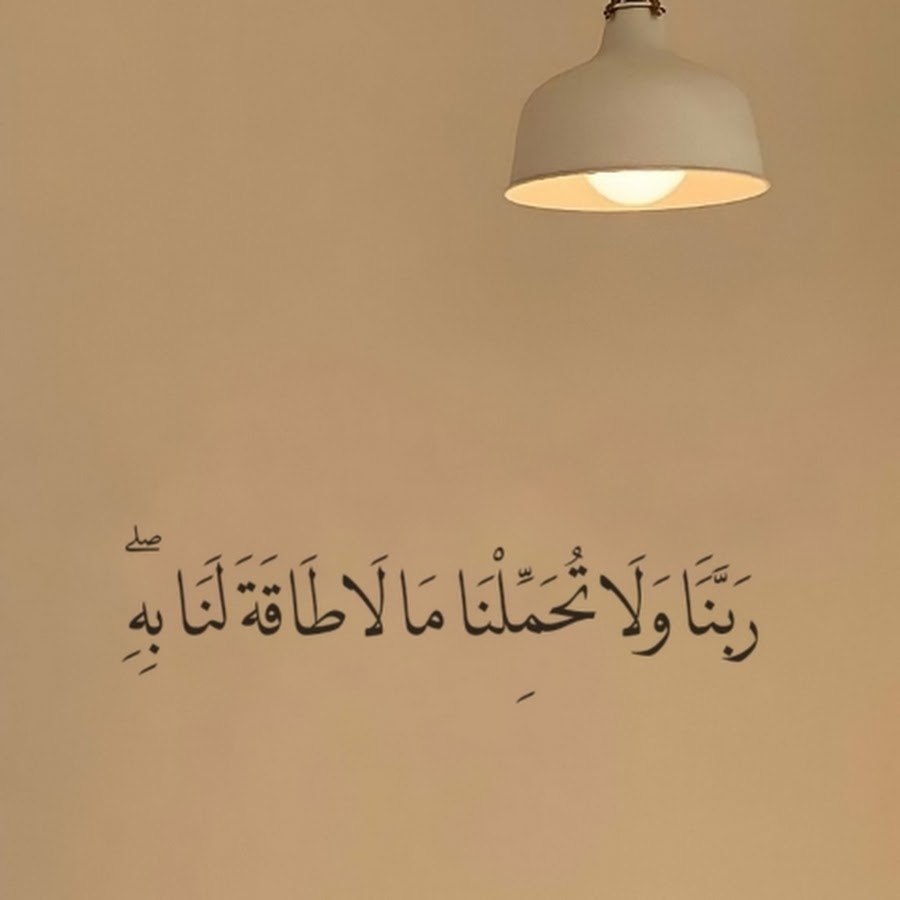 رَبَّنَا وَلَا تُحَمِّلْنَا مَا لَا طَاقَةَ لَنَا بِهِ ۖ